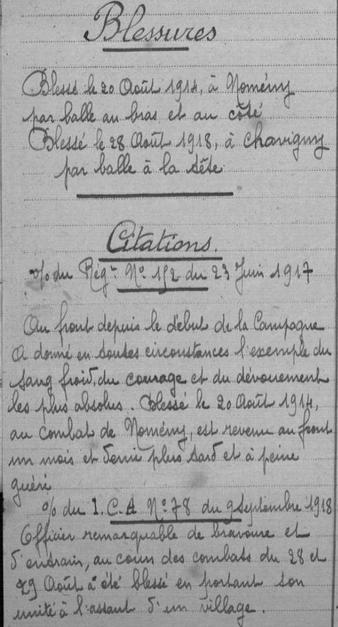 Blessures
Blessé le 20 Août 1914, à Nomény
par balle au bras et au côté
Blessé le 28 Août 1918, à Chavigny
par balle à la tête
Citations.
% du Rég^nt N° 152 du 23 Juin 1917
Au front depuis le début de la Campagne
A donné en toutes circonstances l'exemple du
sang froid, du courage et du dévouement
les plus absolus. Blessé le 20 Août 1914,
au combat de Nomény, est revenu au front
un mois et demi plus tard et à peine
guéri
% du 1. C. A. N° 78 du 9 Septembre 1918
Officier remarquable de bravoure et
d'entrain, au cours des combats du 28 et
29 Août a été blessé en portant son
unité à l'assaut d'un village.